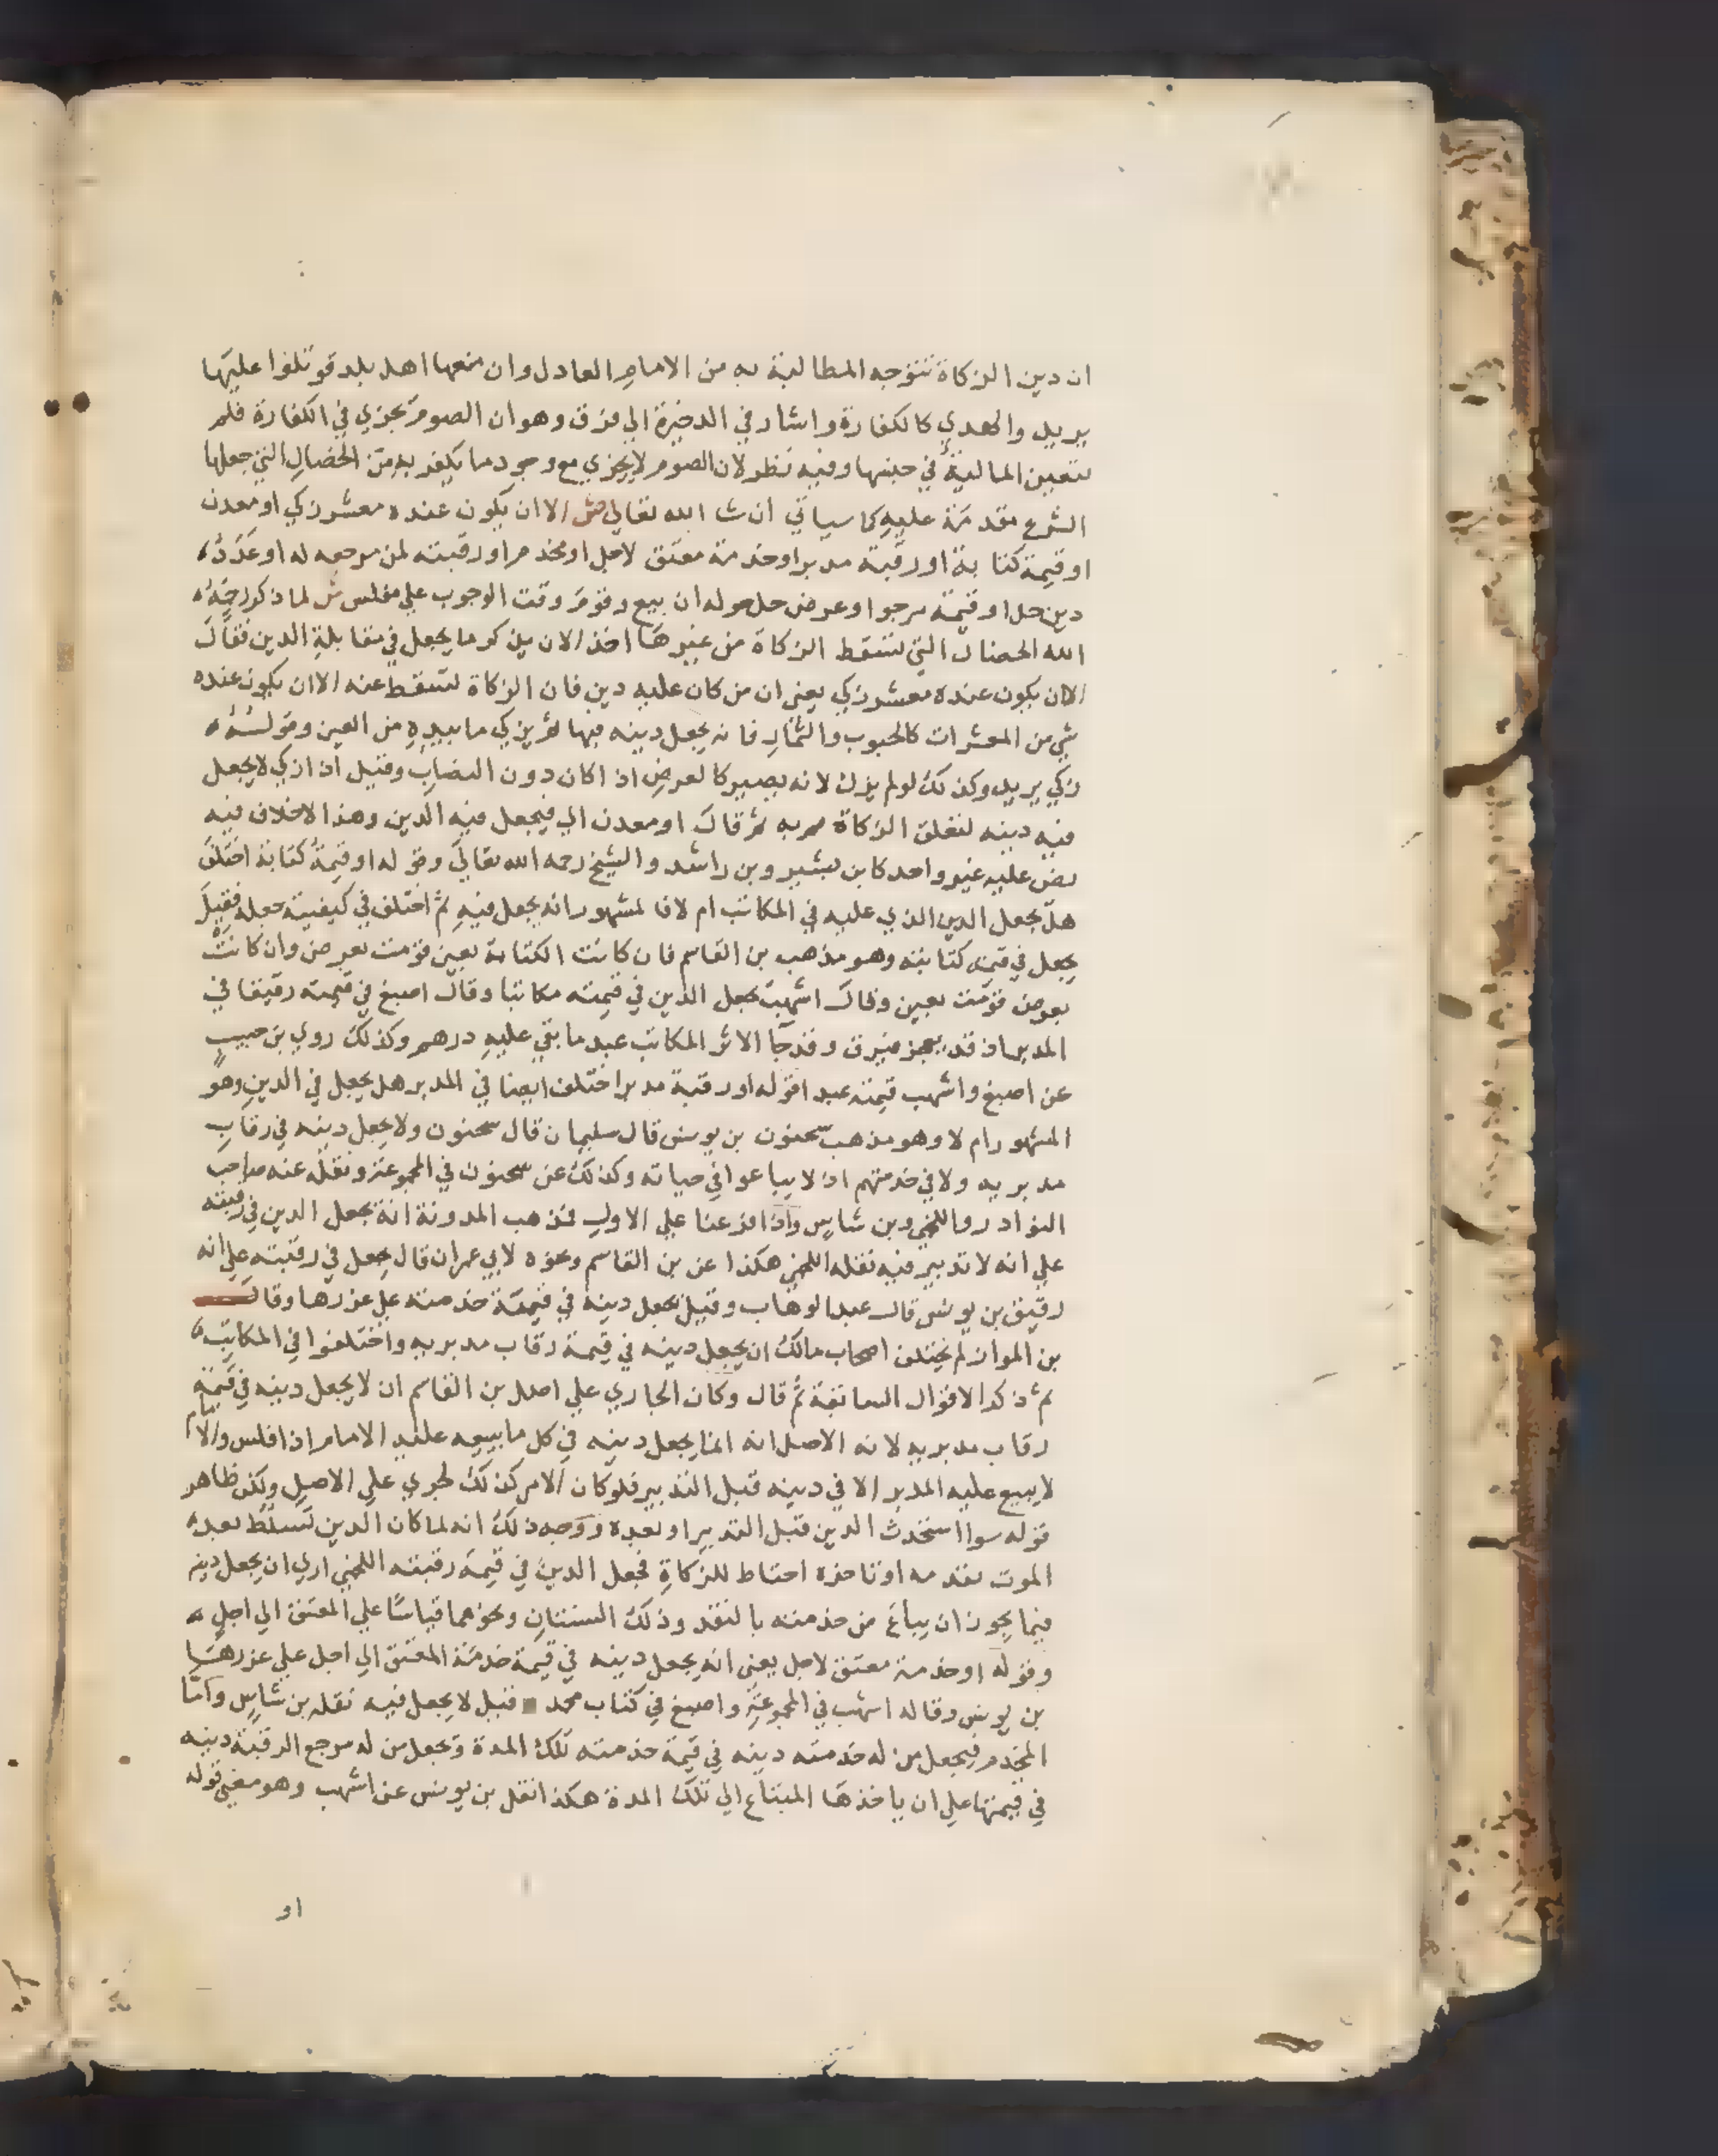 ان دين الزكاة تتوجه المطالبة به من الامام العادل وان منعها اهل بلد قوتلوا عليها
يريد والهدي كالكفارة واشار في الدخيرة الي فرق وهو ان الصوم يجزي في الكفارة فلم
تتعين المالية في جنسها وفيه نظر لان الصوم لا يجزي مع وجود ما يكفر به من الخصال التي جعلها
الشرع مقدمة عليه كما سياتي ان شا الله تعالي ص الا ان يكون عنده معشر زكي او معدن
او قيمة كتابة او رقبة مدبر او خدمة معتق لاجل او مخدم او رقبته لمن مرجعه له او عدد
دين حل او قيمة مرجو او عرض حل حوله ان بيع وقوم وقت الوجوب علي مفلس ش لما ذكر رحمه
الله الخصال التي تسقط الزكاة من غيرها اخذ الان يذكر ما يجعل في مقابلة الدين فقال
الا ان يكون عنده معشر زكي يعني ان من كان عليه دين فان الزكاة تسقط عنه الا ان يكون عنده
شي من المعشرات كالحبوب والثمار فانه يجعل دينه فيها ثم يزكي ما بيده من العين وقولـــه
زكي يريد وكذلك لو لم يزك لانه يصير كالعرض اذا كان دون النصاب وقيل اذا زكي لا يجعل
فيه دينه لتعلق الزكاة به ثم قال او معدن اي فيجعل فيه الدين وهذا لا خلاف فيه
نص عليه غير واحد كابن بشير وبن راشد والشيخ رحمه الله تعالي وقوله او قيمة كتابة اختلف
هل يجعل الدين الذي عليه في المكاتب ام لا فالمشهور انه يجعل فيه ثم اختلف في كيفية جعله فقيل
يجعل في قيمة كتابته وهو مذهب بن القاسم فان كانت الكتابة بعين قومت بعرض وان كانت
بعرض قومت بعين وقال اشهب يجعل الدين في قيمته مكاتبا وقال اصبغ في قيمته رقيقا في
المدبر اذ قد يعجز فيرق وقد جا الاثر المكاتب عبد ما بقي عليه درهم وكذلك روي بن حبيب
عن اصبغ واشهب قيمته عبدا قوله او رقبة مدبر اختلف ايضا في المدبر هل يجعل في الدين وهو
المشهور ام لا وهو مذهب سحنون بن يونس قال سليمان قال سحنون ولا يجعل دينه في رقاب
مدبريه ولا في خدمتهم اذ لا يباعوا في حياته وكذلك عن سحنون في المجموعة ونقله عنه صاحب
النوادر واللخمي وبن شاس واذا فرعنا علي الاول فمذهب المدونة انه يجعل الدين في رقبته
علي انه لا تدبير فيه نقله اللخمي هكذا عن بن القاسم ونحوه لابي عمران قال يجعل في رقبته علي انه
رقيق بن يونس قال عبد الوهاب وقيل يجعل دينه في قيمة خدمته علي غررها وقال
بن المواز لم يختلف اصحاب مالك ان يجعل دينه في قيمة رقاب مدبريه واختلفوا في المكاتب
ثم ذكر الاقوال السابقة ثم قال وكان الجاري علي اصل بن القاسم ان لا يجعل دينه في قيمة
رقاب مدبريه لانه الاصل انه انما يجعل دينه في كل ما يبيعه عليه الامام اذا افلس والامام
لا يبيع عليه المدبر الا في دينه قبل التدبير فلو كان الامر كذلك لجري علي الاصل ولكن ظاهر
قوله سوا استحدث الدين قبل التدبير او بعده ووجه ذلك انه لما كان الدين تسلط بعد
الموت تقدمه او تاخره احتاط للزكاة فجعل الدين في قيمة رقبته اللخمي اري ان يجعل دينه
فيما يجوز ان يباع من خدمته بالنقد وذلك السنتان ونحوهما قياسا علي المعتق الي اجل
وقوله او خدمة معتق لاجل يعني انه يجعل دينه في قيمة خدمة المعتق الي اجل علي غررها
بن يونس وقاله اشهب في المجموعة واصبغ في كتاب محمد قيل لا يجعل فيه نقله بن شاس واما
المخدم فيجعل من له خدمته دينه في قيمة خدمته تلك المدة ويجعل من له مرجع الرقبة دينه
في قيمتها علي ان ياخذها المبتاع الي تلك المدة هكذا نقل بن يونس عن اشهب وهو معني قوله
او